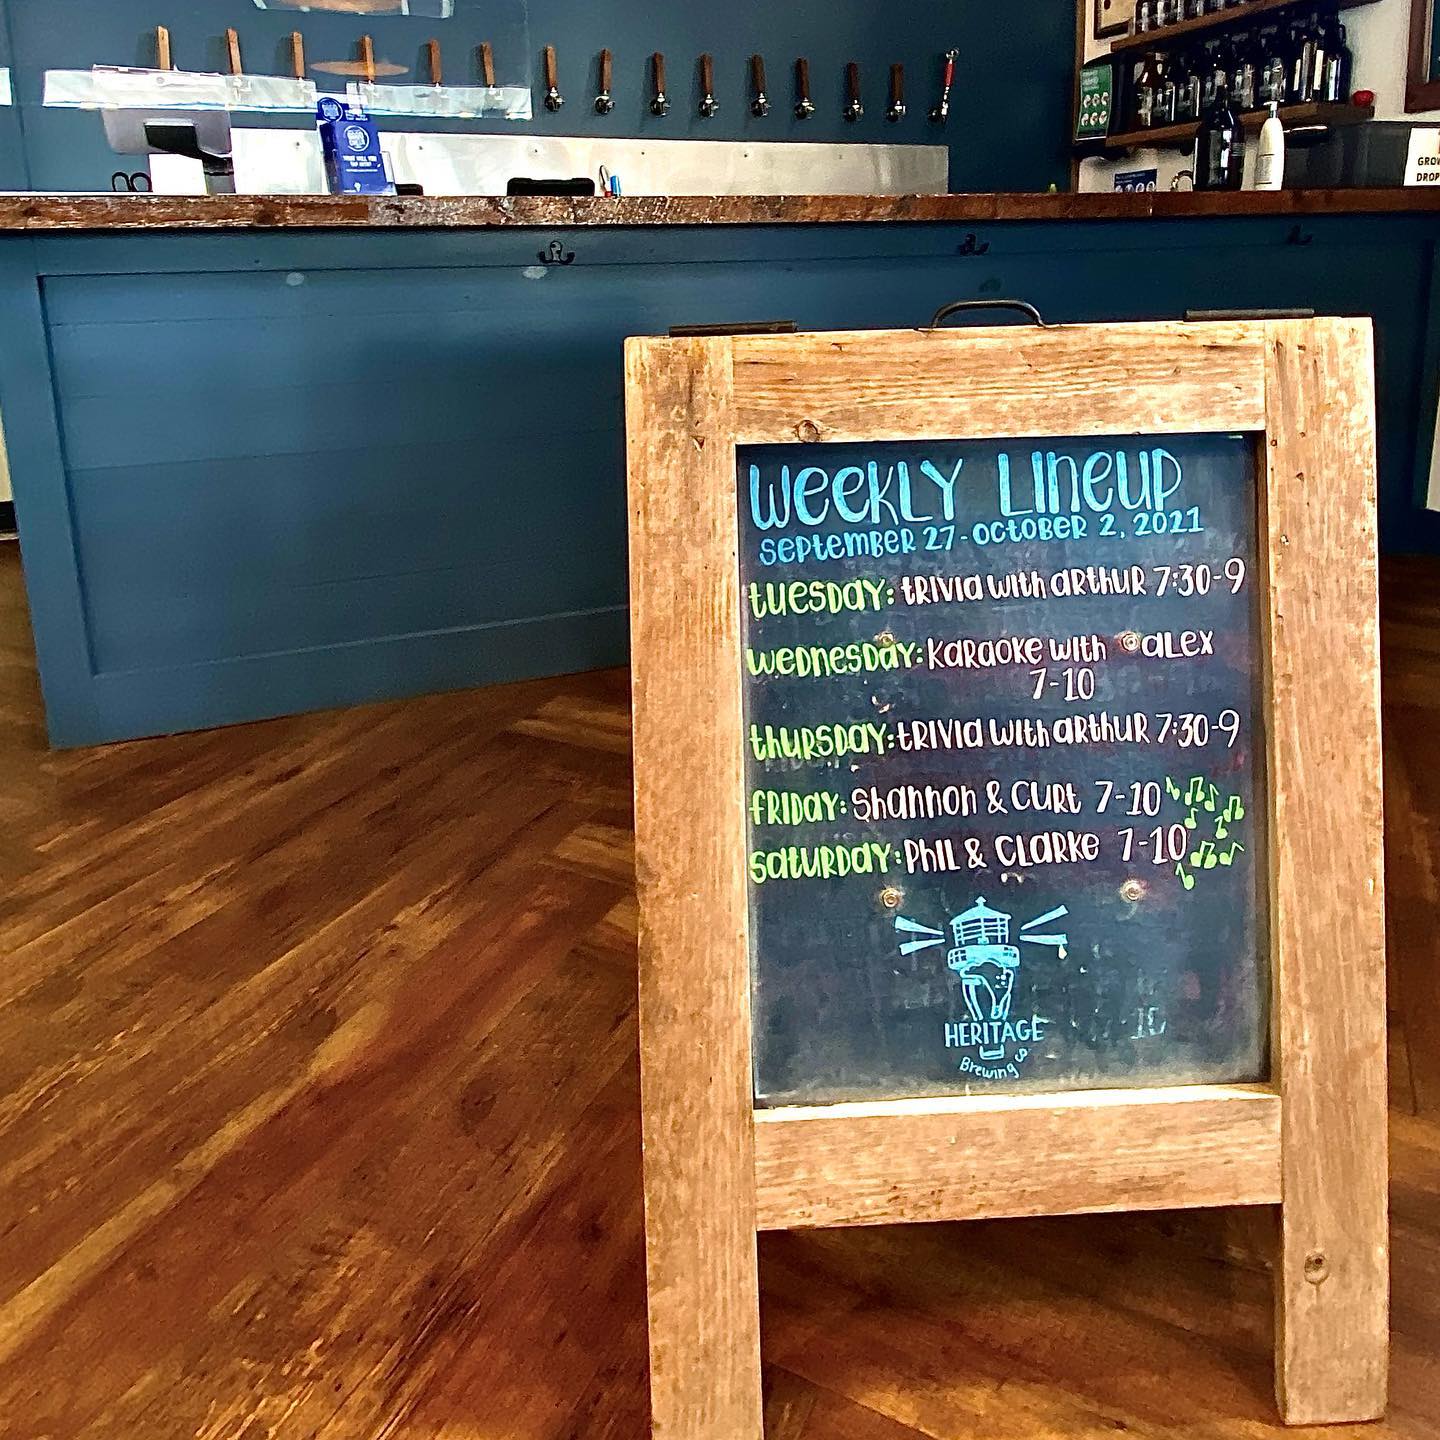 WEEKLY LINEUP
SEPTEMBER 27 - OCTOBER 2, 2021
TUESDAY: TRIVIA WITH ARTHUR 7:30-9
WEDNESDAY: KARAOKE WITH ALEX
7-10
THURSDAY: TRIVIA WITH ARTHUR 7:30-9
FRIDAY: SHANNON & CURT 7-10
SATURDAY: PHIL & CLARKE 7-10
HERITAGE
Brewing